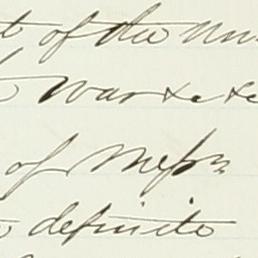 of the
War &c &c
of Messrs
definite